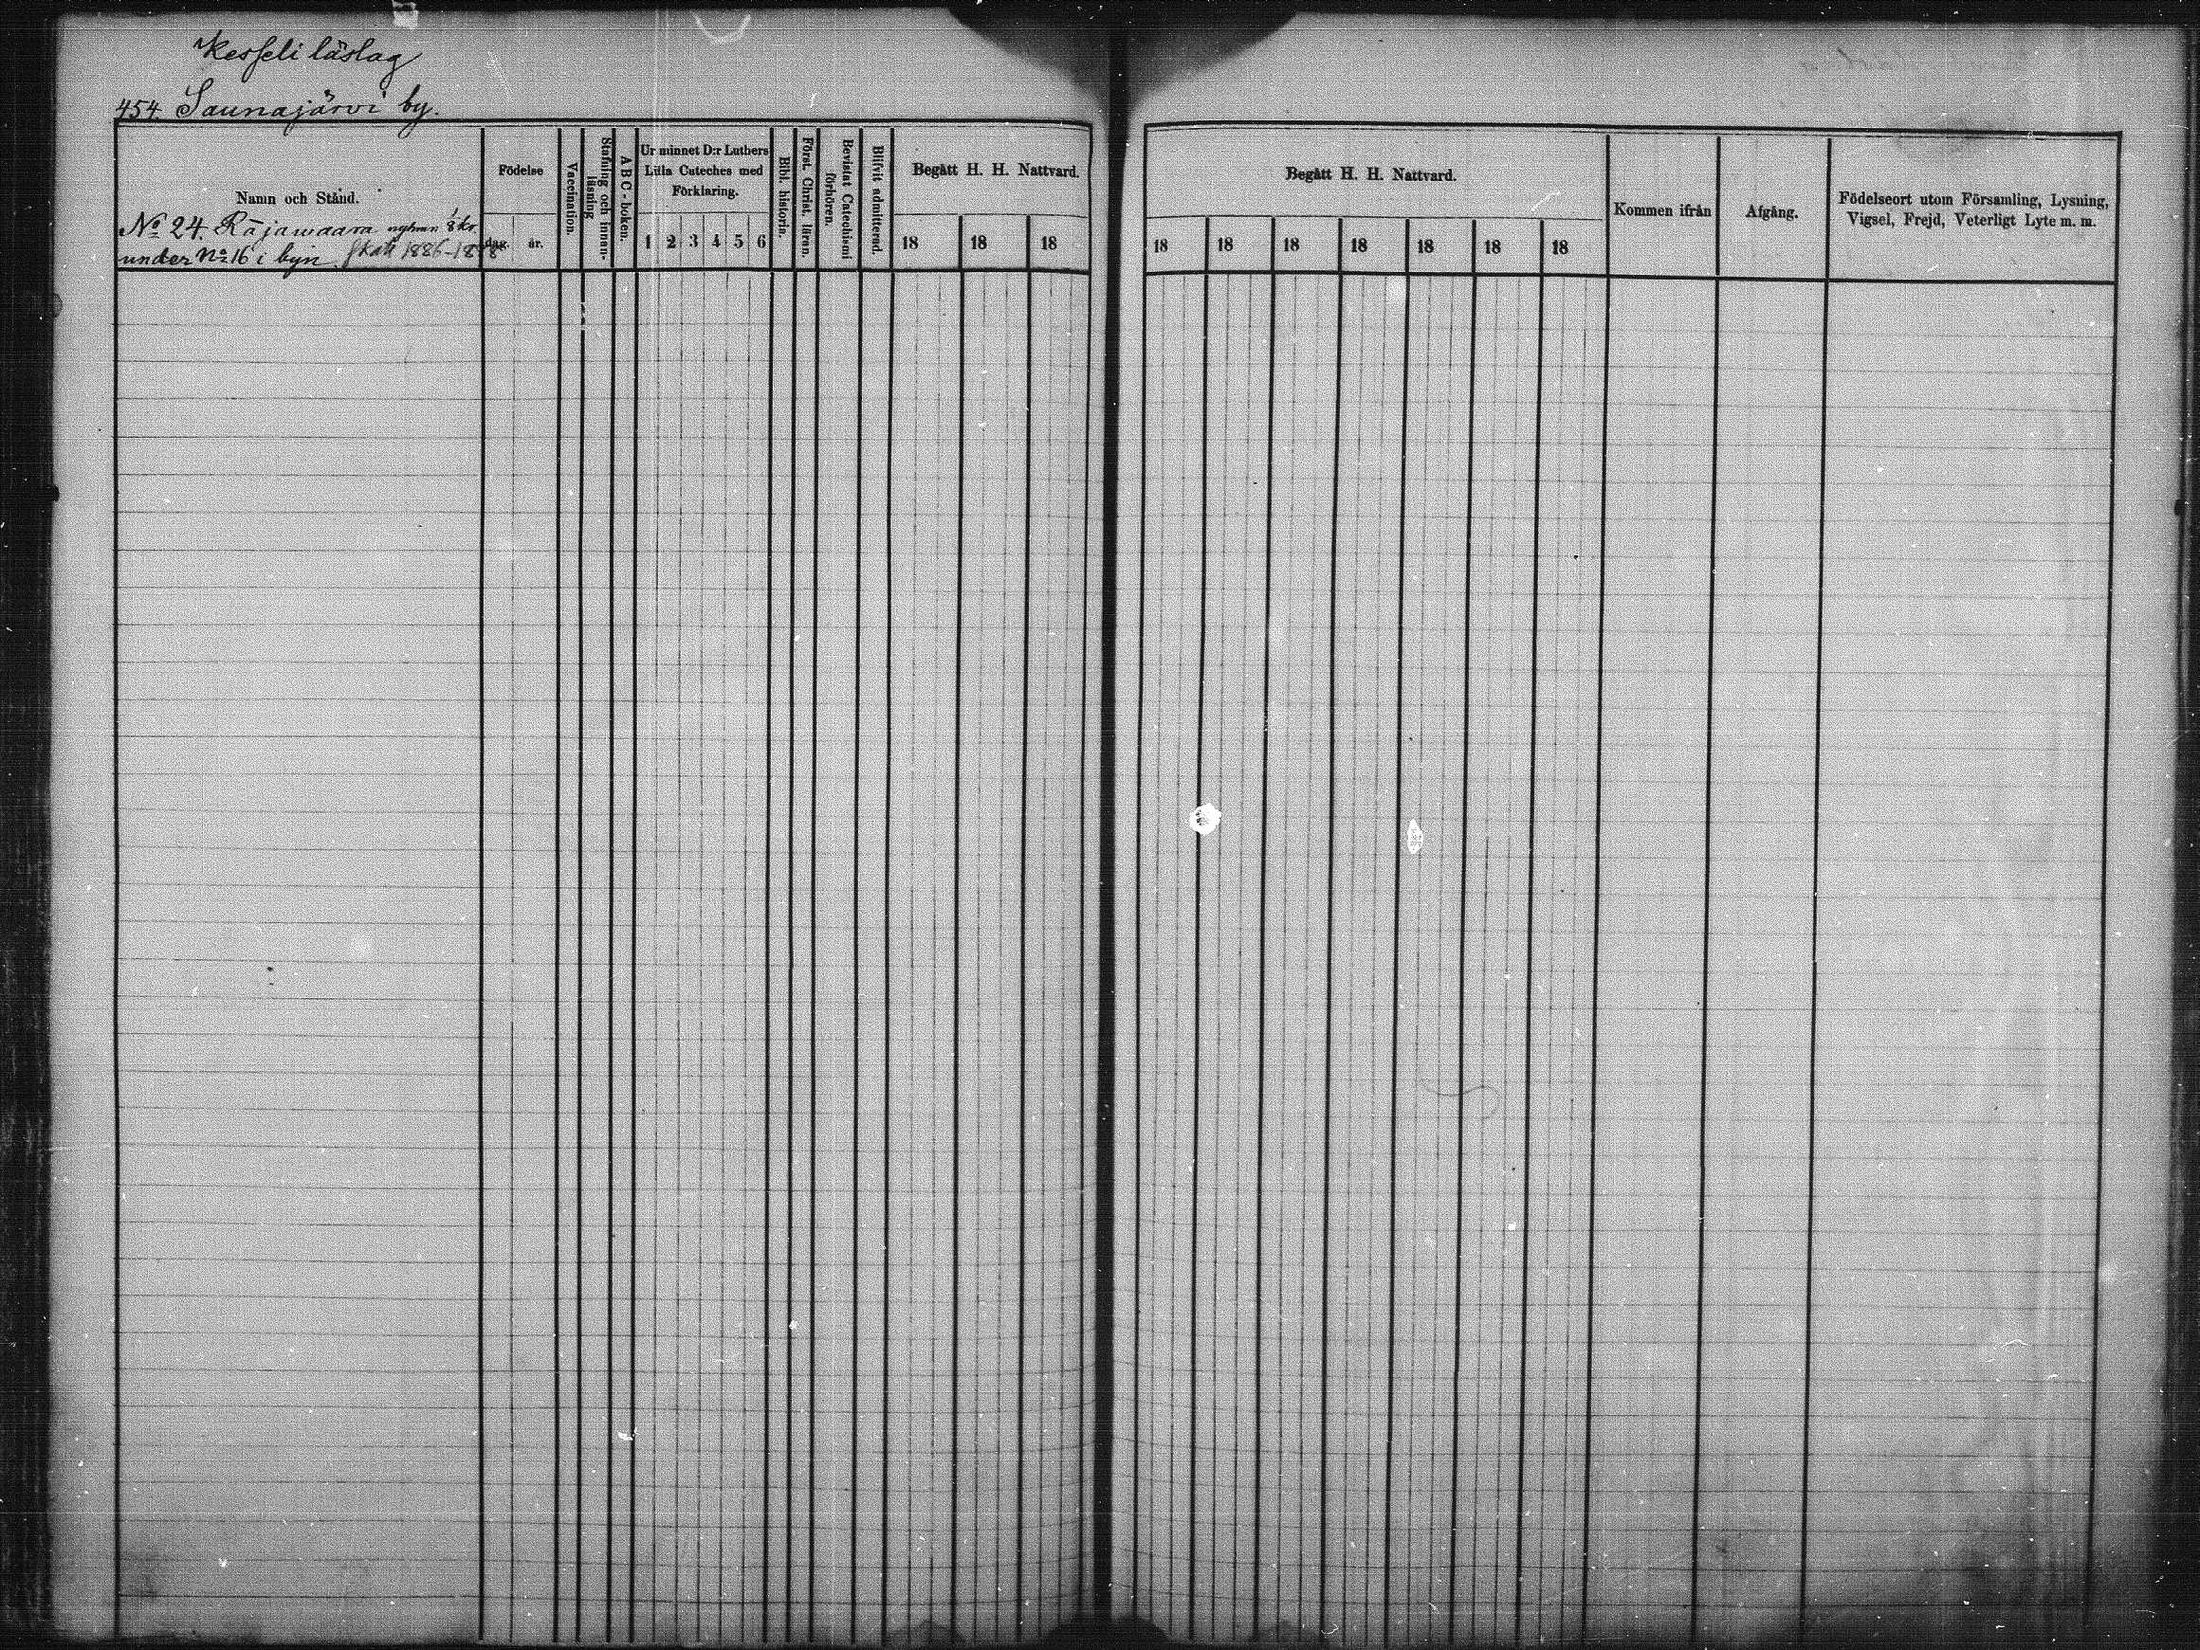 Kesseli läslag
454. Saunajärvi by.
Namn och Stånd.
No 24. Räjäwaara nyhman 1/8 kr.
under No 16 i byn. skatt 1886-1898
Födelse
dag.
år.
Vaccination.
Stafning och innanläsning
A B C - boken.
Ur minnet D:r Luthers
Lilla Cateches med
Förklaring.
1 2 3 4 5 6
Bibl. historia.
Först. Christ. läran.
Bevistat Catechismi förhören.
Blifvit admitterad.
Begått H. H. Nattvard.
18 18 18
Begått H. H. Nattvard.
18 18 18 18 18 18 18
Kommen ifrån
Afgång.
Födelseort utom Församling, Lysning,
Vigsel, Frejd, Veterligt Lyte m. m.